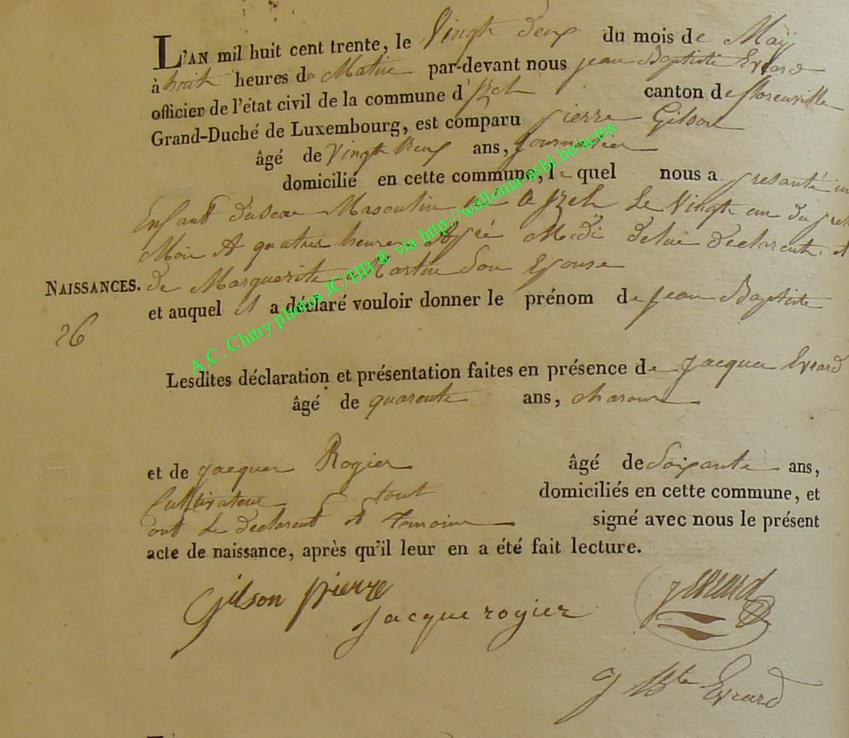 L'AN mil huit cent trente, le Vingt deux du mois de Maÿ
à huit heures de Matin par-devant nous jean Baptiste Evrard
officier de l'état civil de la commune d'jzel canton de florenville
Grand-Duché de Luxembourg, est comparu pierre Gilson
âgé de Vingt neuf ans, journalier
domicilié en cette commune, le quel nous a presanté un
Enfant duseœ Masculin né a jzel Le Vingt un du
Moi A quatre heure Apré Midi delui declarent et
NAISSANCES. de Marguerite Martin Son Epouse
et auquel il a déclaré vouloir donner le prénom de jean Baptiste
26
Lesdites déclaration et présentation faites en présence de jacque Evrard
âgé de quarente ans, charon
et de jacque Rogier âgé de Soixante ans,
Cultivateur tout domiciliés en cette commune, et
ont Le declarent et Temoin signé avec nous le présent
acte de naissance, après qu'il leur en a été fait lecture.
Gilson pierre jacque rogier j evrard
j Bte Evrard
A.C. Chiny photos JC/HB ® via http://wallonia-asbl.be/actes